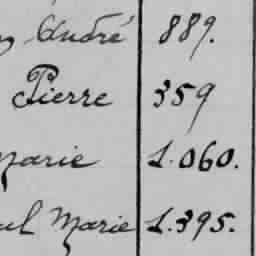 André 889.
Pierre 359
Marie 1.060.
Marie 1.395.